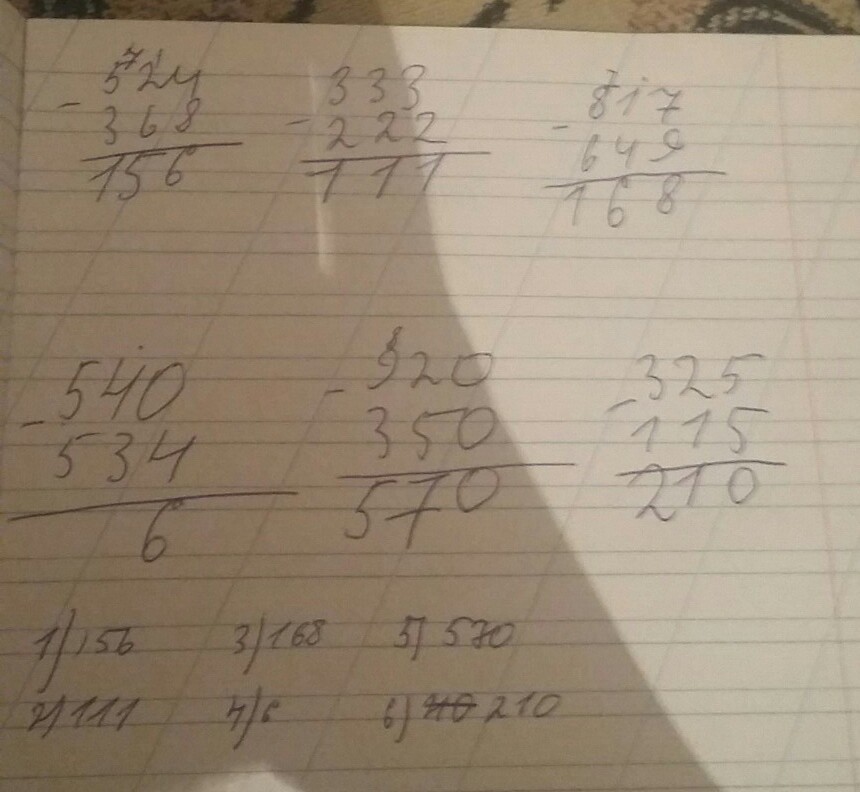 524 333 817
- 368 - 222 - 649
156 111 168
540 920 325
- 534 - 350 - 115
6 570 210
1) 156 3) 168 5) 570
2) 111 4) 6 6) 210